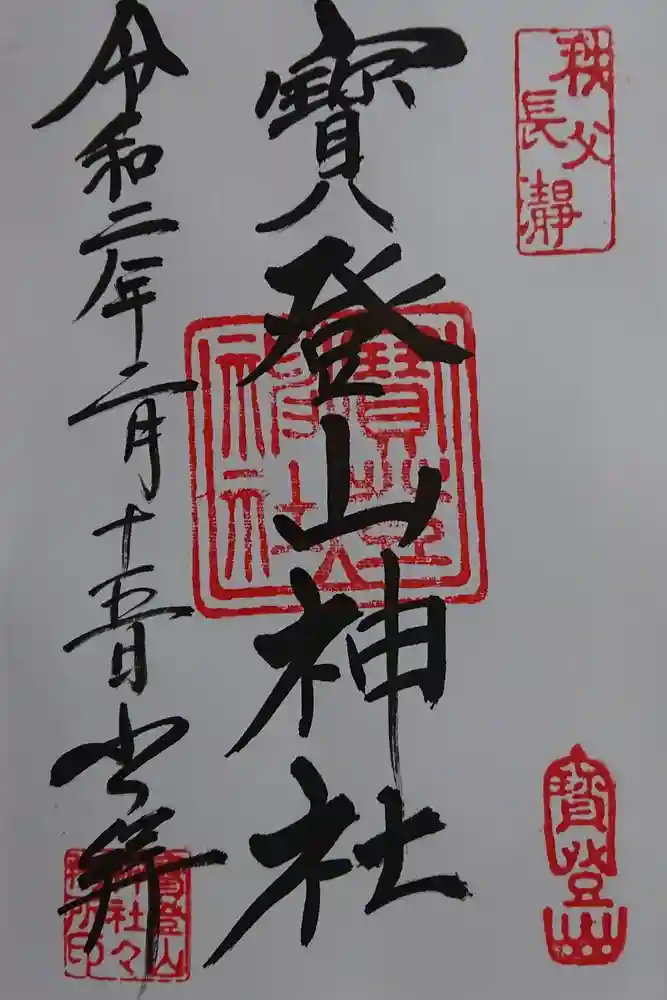 秩父
長瀞
寶登山神社
寶登山
神社
寶登山
令和二年二月十五日
寶登山
神社々
務所印